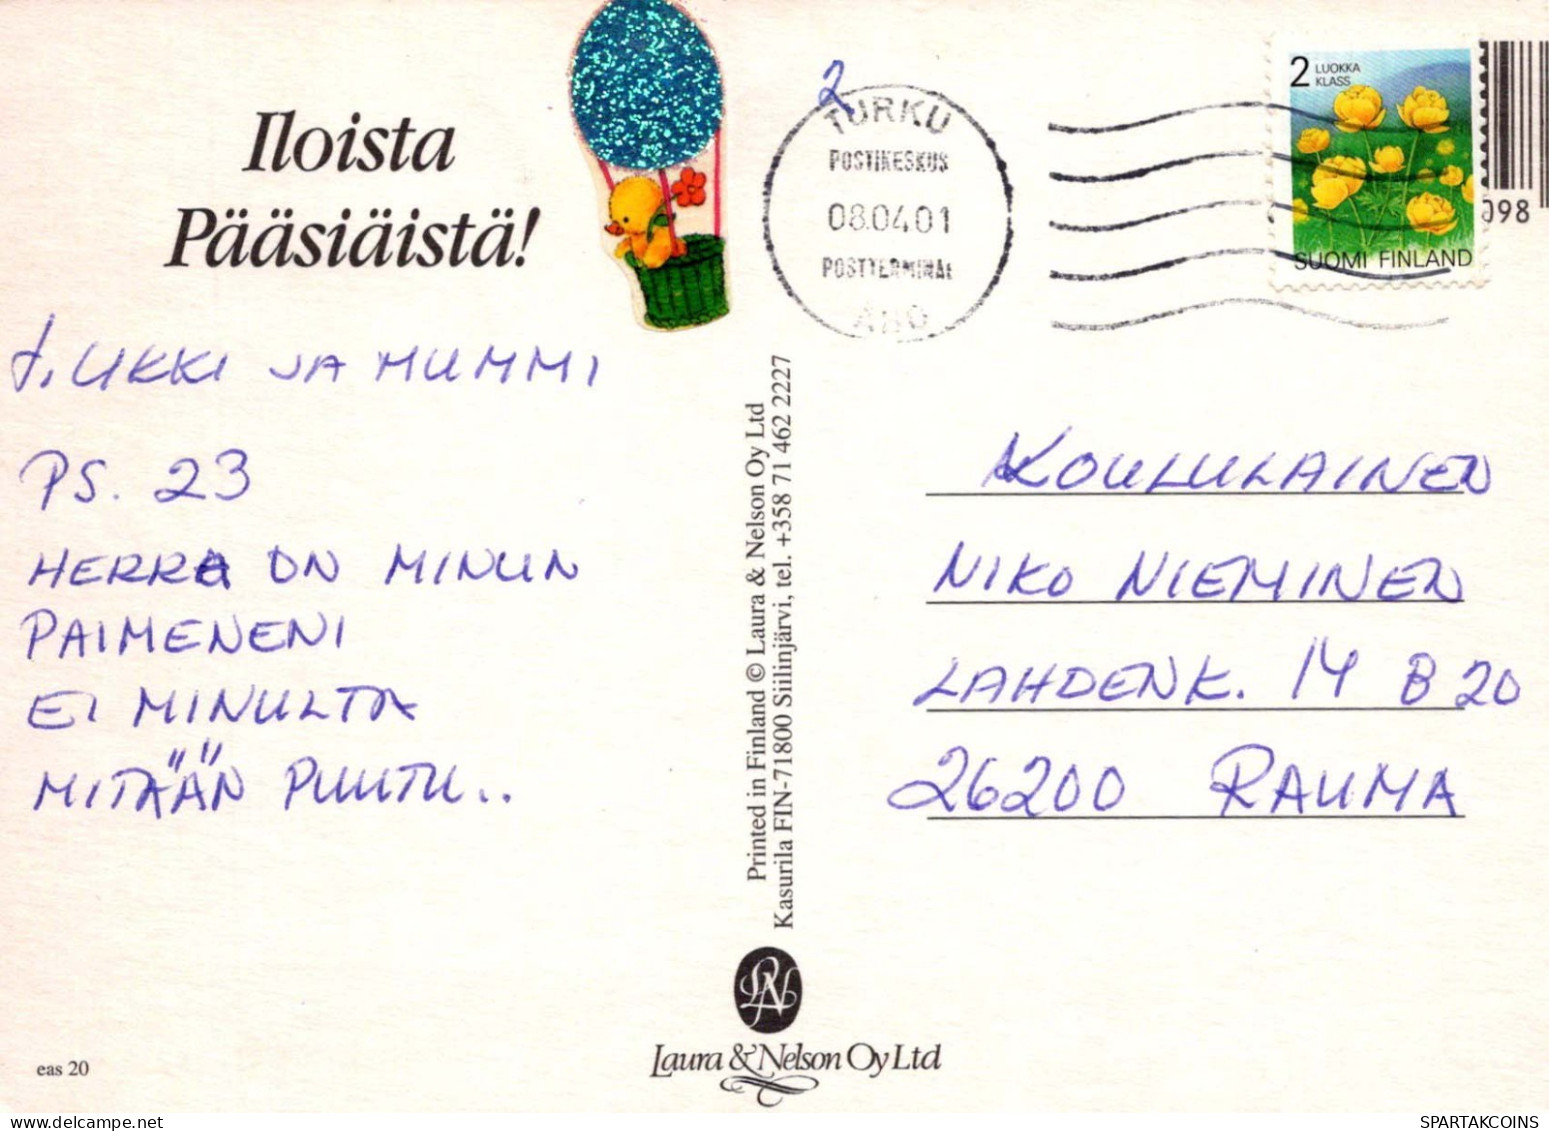 Iloista
Pääsiäistä!
T. UKKI JA MUMMI
PS. 23
HERRA ON MINUN
PAIMENENI
EI MINULTA
MITÄÄN PUUTU..
eas 20
Printed in Finland © Laura & Nelson Oy Ltd
Kasurila FIN-71800 Siilinjärvi, tel. +358 71 462 2227
LN
Laura & Nelson Oy Ltd
2
TURKU
POSTIKESKUS
08.04.01
POSTTERMINAL
ÅBO
2 LUOKKA
KLASS
SUOMI FINLAND
098
KOULULAINEN
NIKO NIEMINEN
LAHDENK. 14 B 20
26200 RAUMA
SPARTAKCOINS